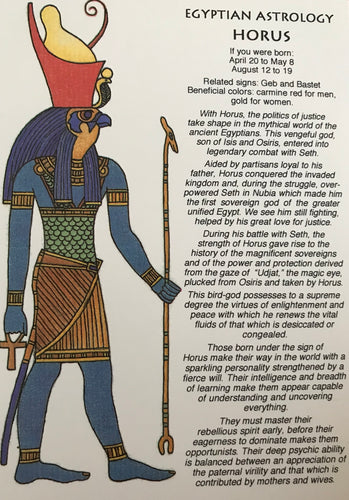 EGYPTIAN ASTROLOGY
HORUS
If you were born:
April 20 to May 8
August 12 to 19
Related signs: Geb and Bastet
Beneficial colors: carmine red for men,
gold for women.
With Horus, the politics of justice
take shape in the mythical world of the
ancient Egyptians. This vengeful god,
son of Isis and Osiris, entered into
legendary combat with Seth.
Aided by partisans loyal to his
father, Horus conquered the invaded
kingdom and, during the struggle, over-
powered Seth in Nubia which made him
the first sovereign god of the greater
unified Egypt. We see him still fighting,
helped by his great love for justice.
During his battle with Seth, the
strength of Horus gave rise to the
history of the magnificent sovereigns
and of the power and protection derived
from the gaze of "Udjat," the magic eye,
plucked from Osiris and taken by Horus.
This bird-god possesses to a supreme
degree the virtues of enlightenment and
peace with which he renews the vital
fluids of that which is desiccated or
congealed.
Those born under the sign of
Horus make their way in the world with a
sparkling personality strengthened by a
fierce will. Their intelligence and breadth
of learning make them appear capable
of understanding and uncovering
everything.
They must master their
rebellious spirit early, before their
eagerness to dominate makes them
opportunists. Their deep psychic ability
is balanced between an appreciation of
the paternal virility and that which is
contributed by mothers and wives.